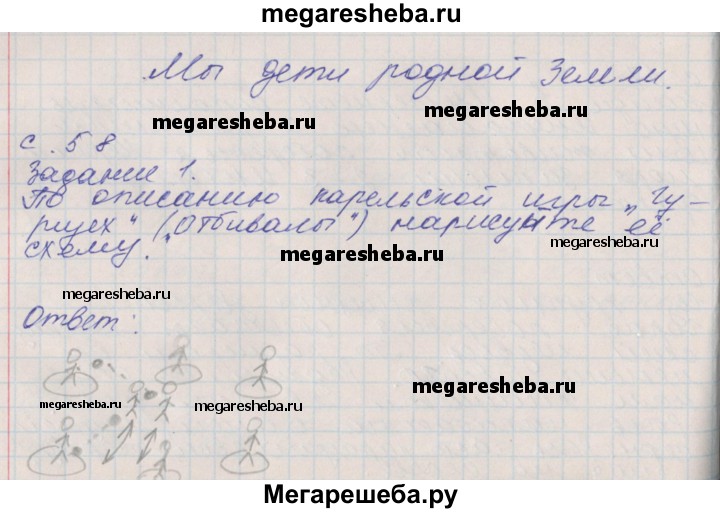 megaresheba.ru
Мы дети родной земли.
megaresheba.ru
megaresheba.ru
с. 58
Задание 1.
По описанию карельской игры „Гу-
рицех" („Отбивалы") нарисуйте её
megaresheba.ru
схему.
megaresheba.ru
megaresheba.ru
Ответ:
megaresheba.ru
megaresheba.ru
megaresheba.ru
Мегарешеба.ру